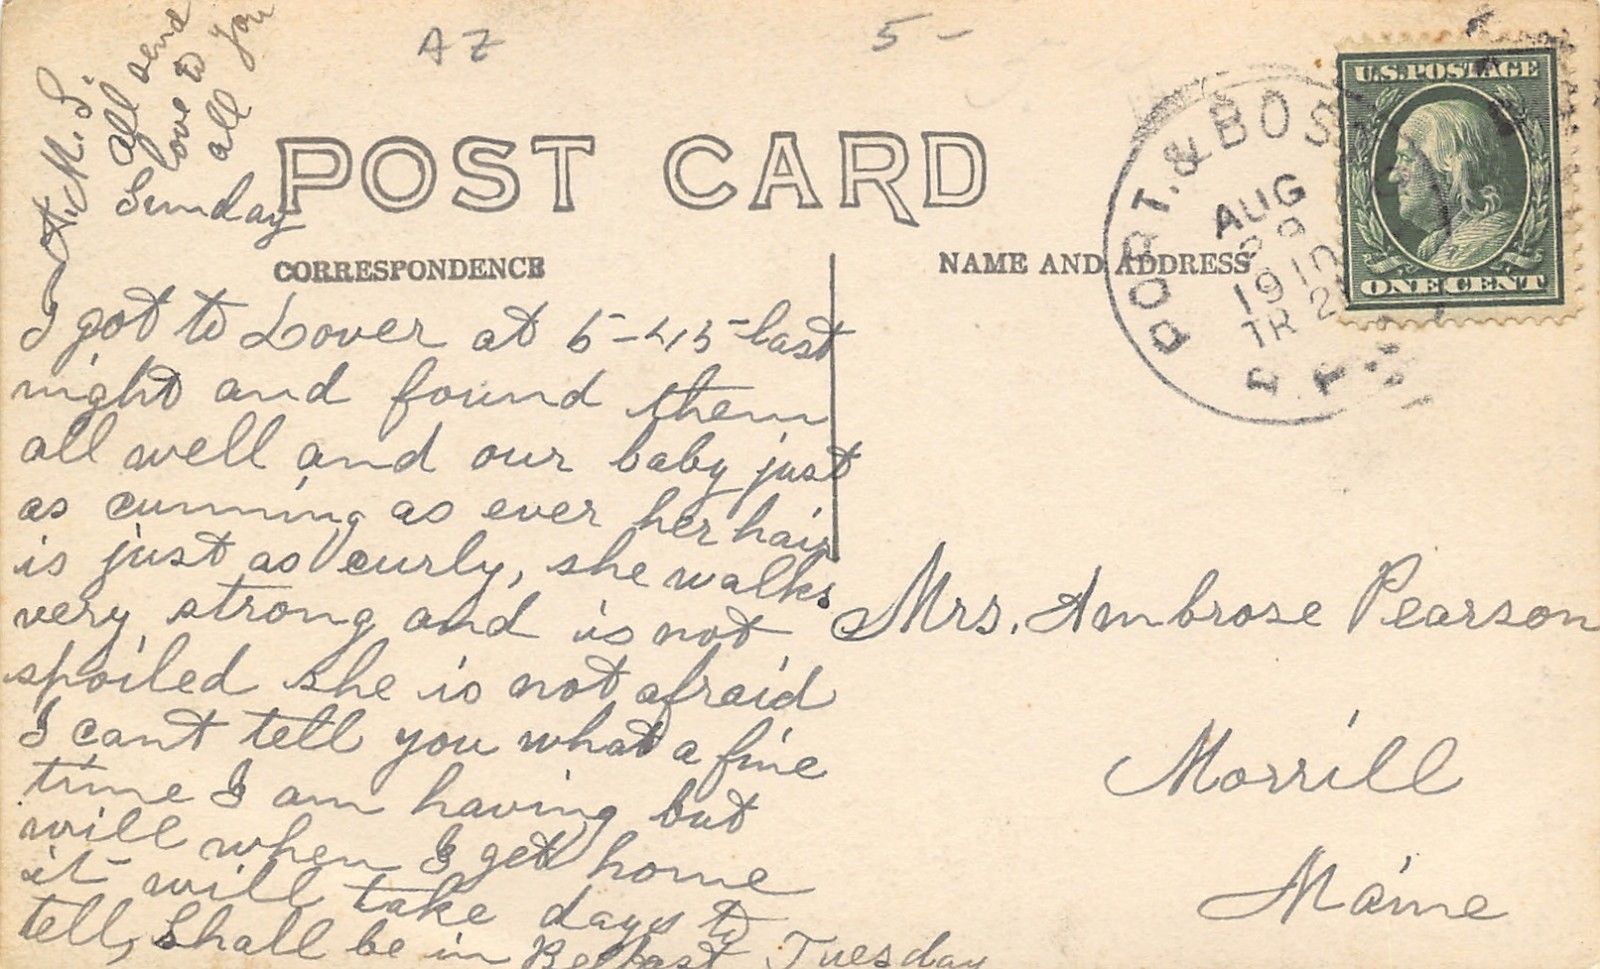 AZ
5-
A.M.S.
All send
love to you
all
Sunday
POST CARD
CORRESPONDENCE
NAME AND ADDRESS
PORT. & BOS
AUG
1910
TR 2
R.P.O.
U.S. POSTAGE
ONE CENT
I got to Dover at 5-45 last
night and found them
all well and our baby just
as cunning as ever her hair
is just as curly, she walks
very strong and is not
spoiled she is not afraid
I cant tell you what a fine
time I am having but
will when I get home
it will take days to
tell, Shall be in Belfast Tuesday
Mrs. Ambrose Pearson
Morrill
Maine